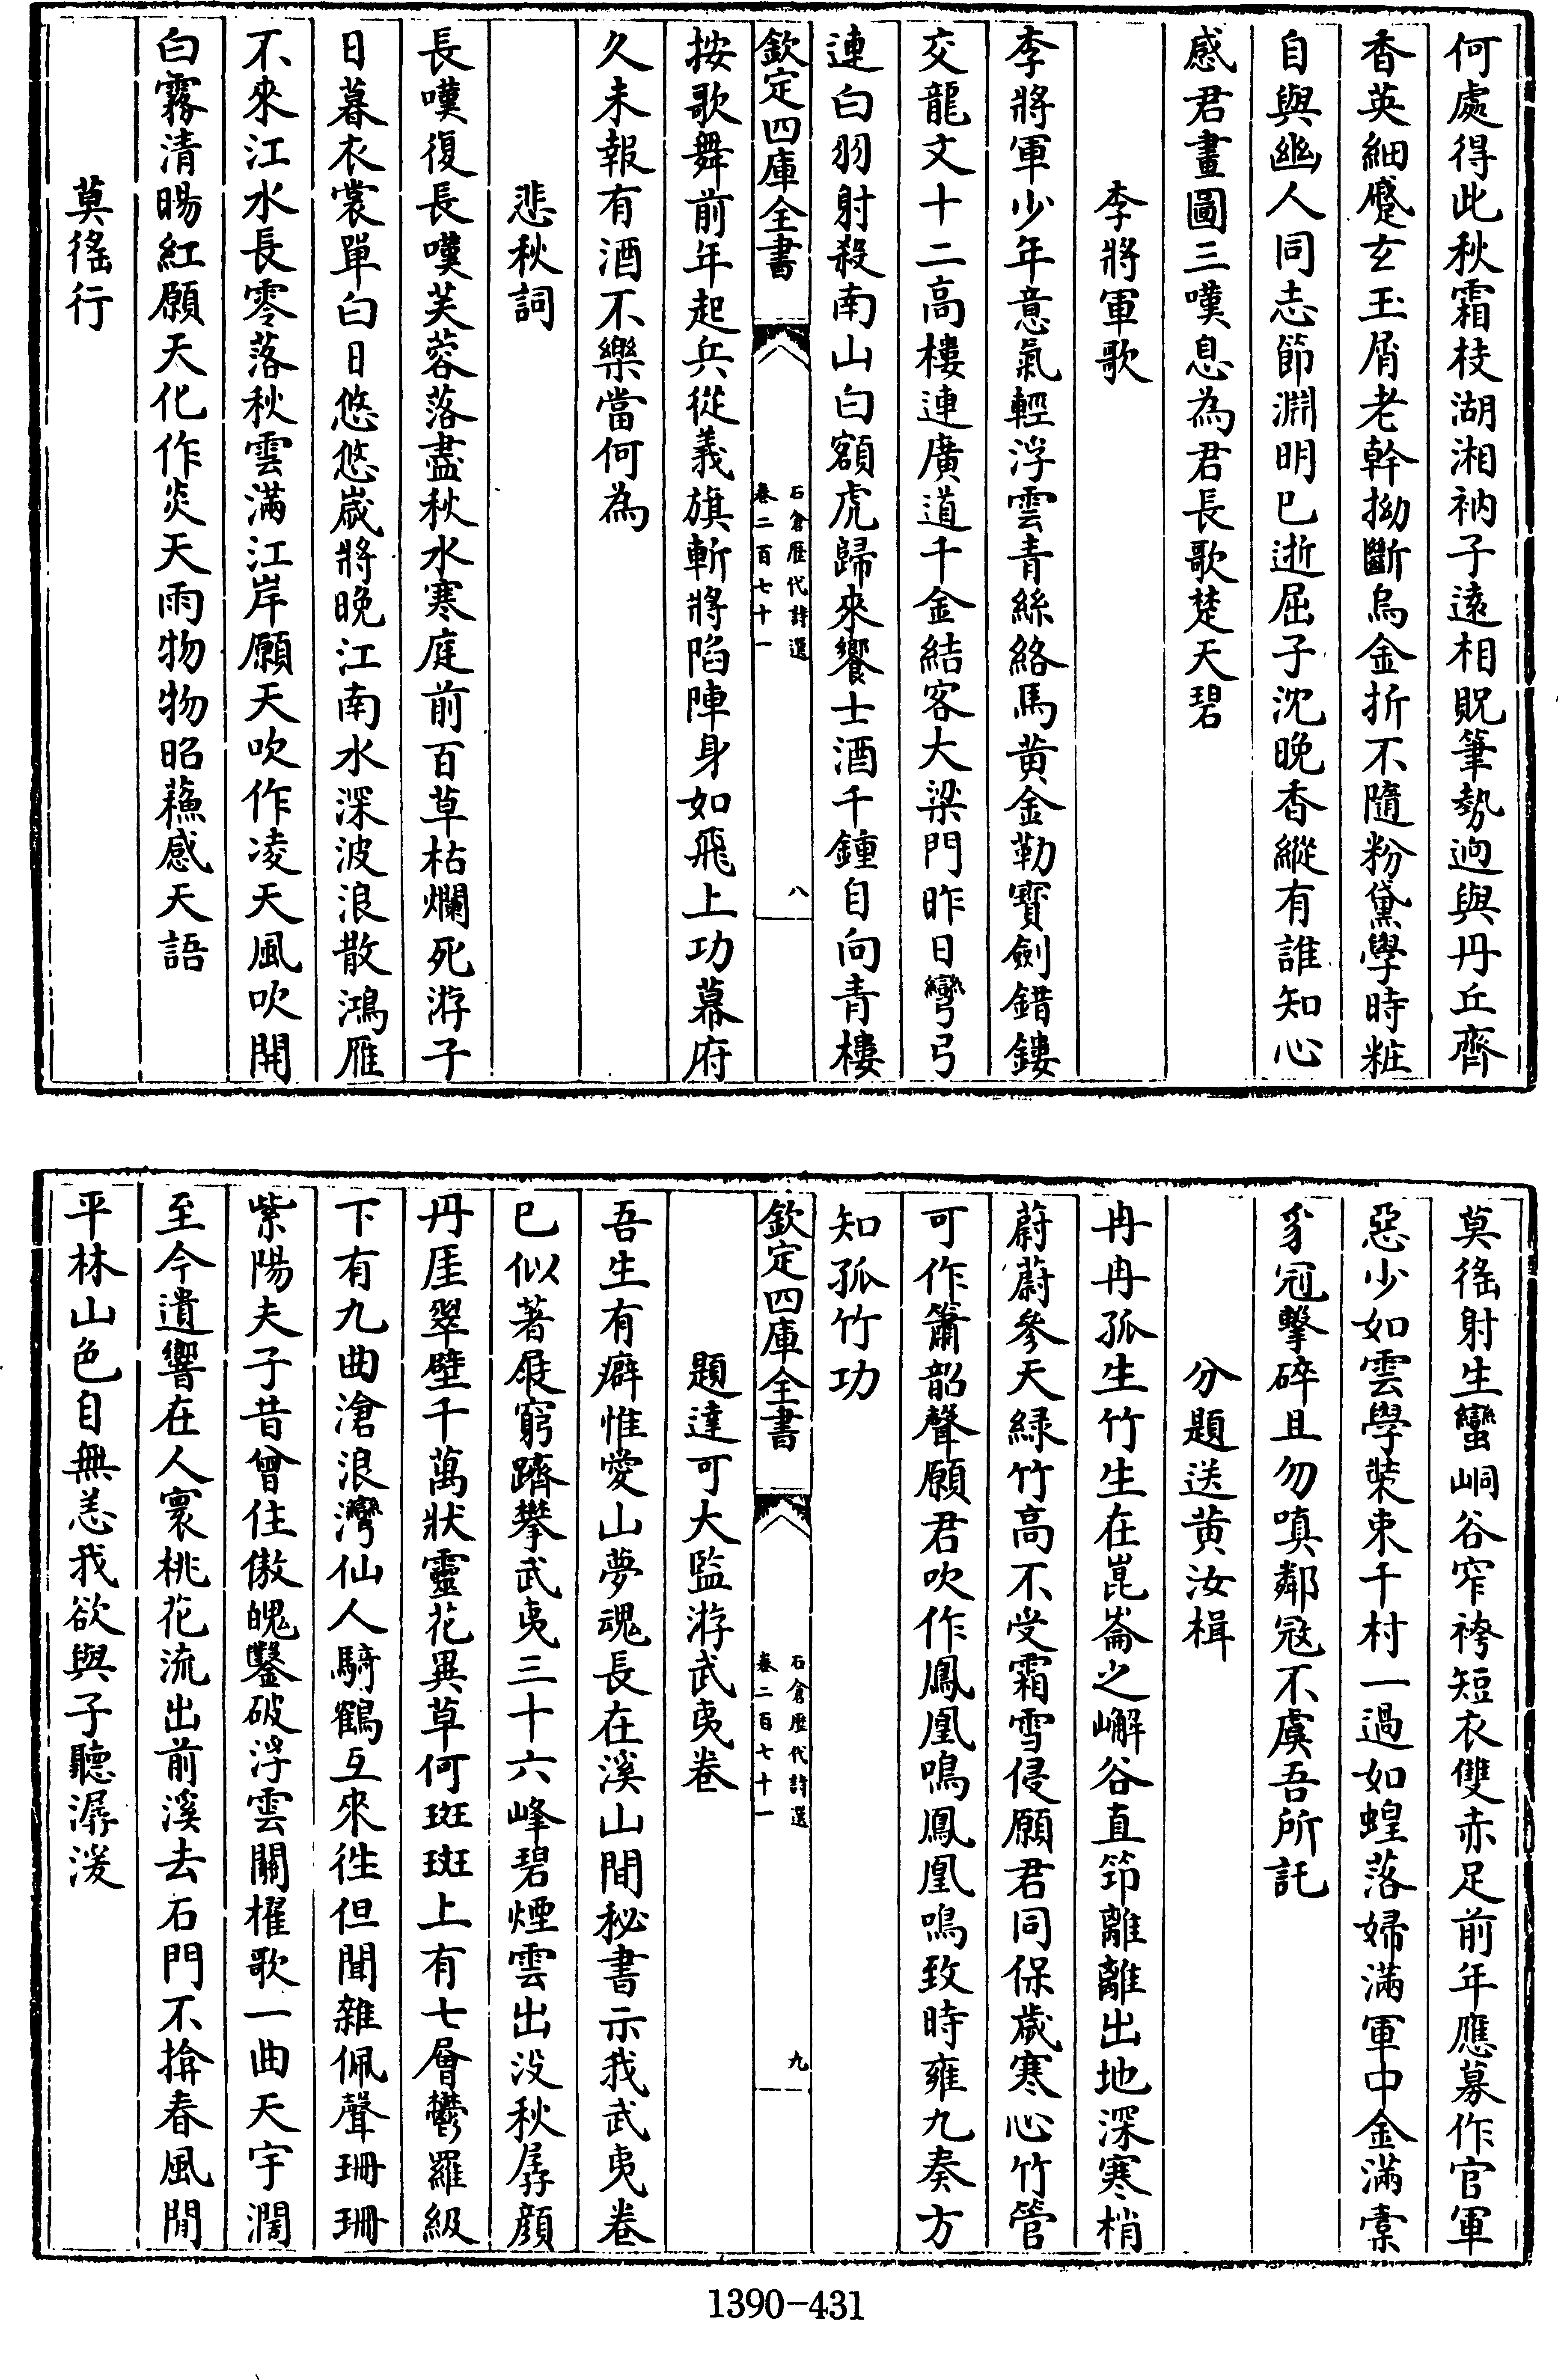 何處得此秋霜枝湖湘衲子遠相貺筆勢逈與丹丘齊
香英細蹙玄玉屑老幹拗斷烏金折不隨粉黛學時粧
自與幽人同志節淵明已逝屈子沈晚香縱有誰知心
感君畫圖三嘆息為君長歌楚天碧
李將軍歌
李將軍少年意氣輕浮雲青絲絡馬黄金勒寳劍錯鏤
交龍文十二高樓連廣道千金結客大梁門昨日彎弓
連白羽射殺南山白額虎歸來饗士酒千鍾自向青樓
欽定四庫全書
石倉歴代詩選
卷二百七十一
八
按歌舞前年起兵從義旗斬將陷陣身如飛上功幕府
久未報有酒不樂當何為
悲秋詞
長嘆復長嘆芙蓉落盡秋水寒庭前百草枯爛死游子
日暮衣裳單白日悠悠嵗將晚江南水深波浪散鴻雁
不來江水長零落秋雲滿江岸願天吹作凌天風吹開
白霧清暘紅願天化作炎天雨物物昭蘓感天語
莫徭行
莫徭射生蠻峒谷窄袴短衣雙赤足前年應募作官軍
惡少如雲學裝束千村一過如蝗落婦滿軍中金滿橐
豸冠擊碎且勿嗔鄰冦不虞吾所託
分題送黄汝楫
冉冉孤生竹生在崑崙之嶰谷直節離離出地深寒梢
蔚蔚參天緑竹高不受霜雪侵願君同保嵗寒心竹管
可作簫韶聲願君吹作鳳凰鳴鳳凰鳴致時雍九奏方
知孤竹功
欽定四庫全書
石倉歴代詩選
卷二百七十一
九
題達可大監游武夷卷
吾生有癖惟愛山夢魂長在溪山間秘書示我武夷卷
已似著屐窮躋攀武夷三十六峰碧煙雲出没秋孱顔
丹厓翠壁千萬狀靈花異草何斑斑上有七層鬱羅級
下有九曲滄浪灣仙人騎鶴互來徃但聞雜佩聲珊珊
紫陽夫子昔曾住傲睨鑿破浮雲關櫂歌一曲天宇濶
至今遺響在人寰桃花流出前溪去石門不揜春風閒
平林山色自無恙我欲與子聽潺湲
1390-431